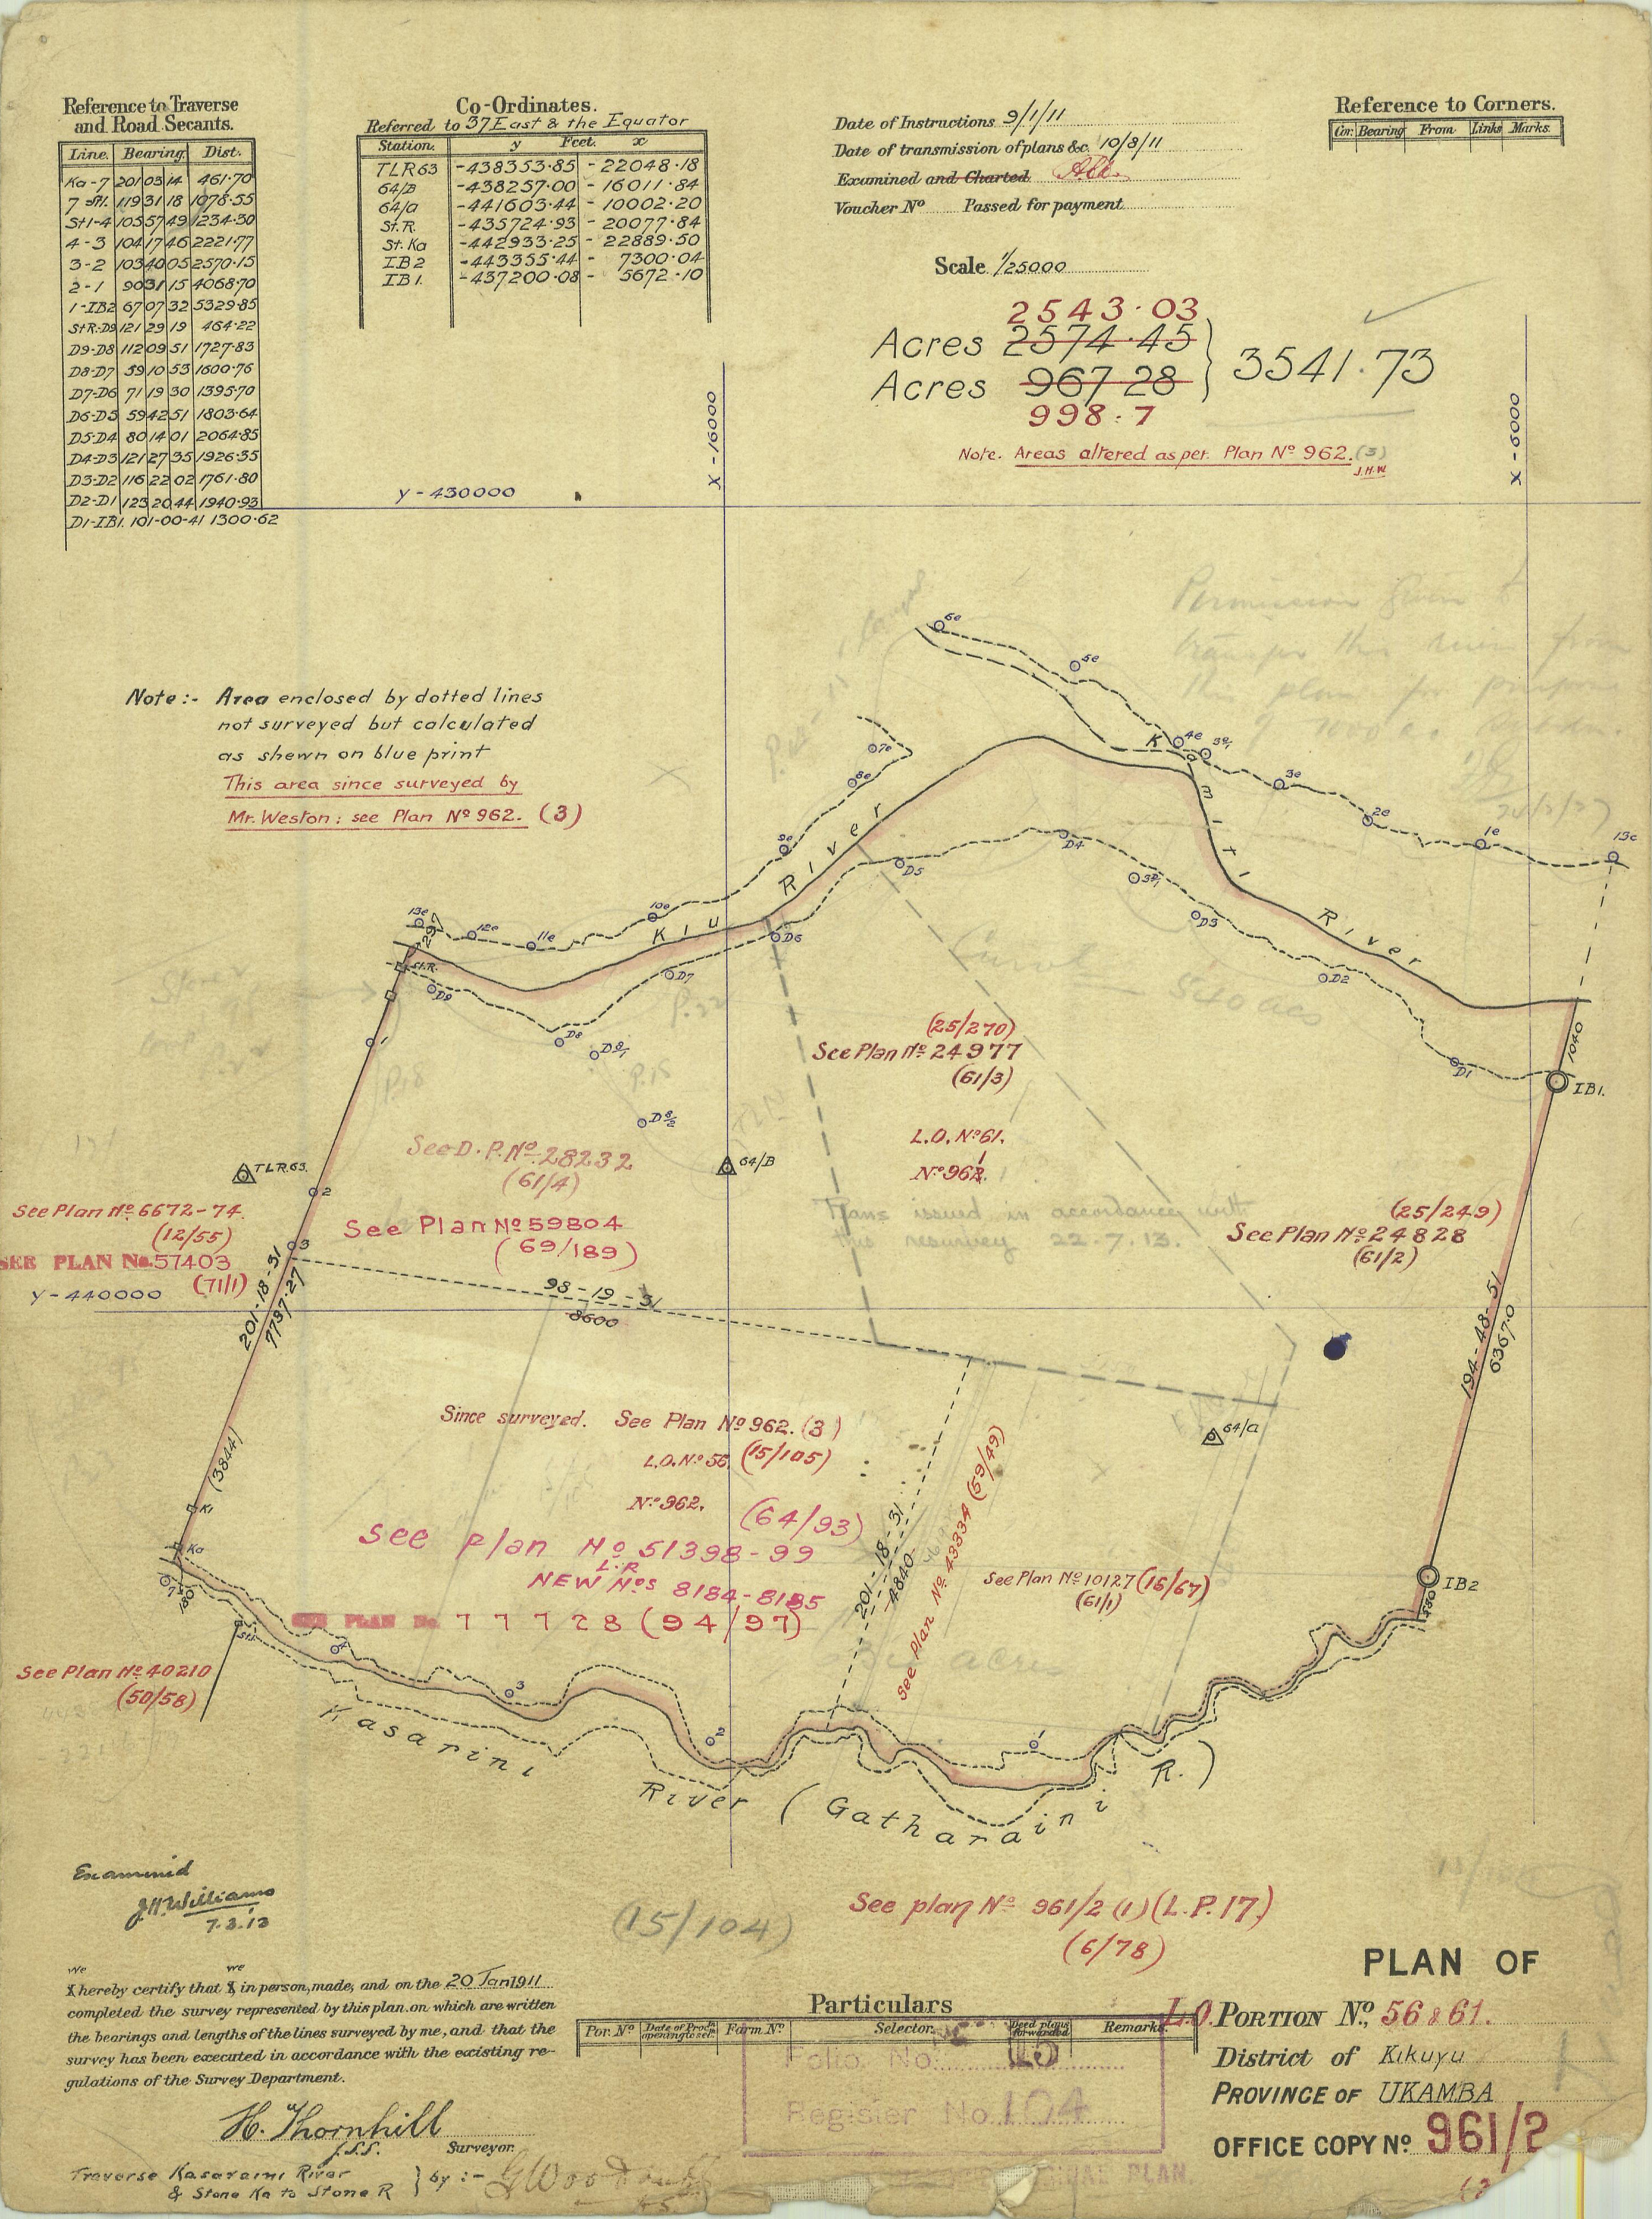 Reference to Traverse
and Road Secants.
Line. Bearing. Dist.
Ka-7 201 03 14 461.70
7-St1. 119 31 18 1078.55
St1-4 105 57 49 1234.30
4-3 104 17 46 2221.77
3-2 103 40 05 2570.15
2-1 90 31 15 4068.70
1-IB2 67 07 32 5329.85
StR-D9 121 29 19 464.22
D9-D8 112 09 51 1727.83
D8-D7 59 10 53 1600.76
D7-D6 71 19 30 1395.70
D6-D5 59 42 51 1803.64
D5-D4 80 14 01 2064.85
D4-D3 121 27 35 1926.35
D3-D2 116 22 02 1761.80
D2-D1 123 20 44 1940.93
D1-IB1. 101-00-41 1300.62
Co-Ordinates.
Referred to 37 East & the Equator
Station. y Feet. x
TLR63 -438353.85 -22048.18
64/B -438257.00 -16011.84
64/a -441603.44 -10002.20
St.R. -435724.93 -20077.84
St.Ka -442933.25 -22889.50
IB2 -443355.44 -7300.04
IB1. -437200.08 -5672.10
Date of Instructions 9/1/11
Date of transmission of plans &c. 10/8/11
Examined and Charted
Voucher No Passed for payment
Scale 1/25000
2543.03
Acres 2574.45
Acres 967.28
998.7
3541.73
Note. Areas altered as per. Plan No 962. (3)
J.H.W
Reference to Corners.
Cor. Bearing From Links Marks.
X-16000
X-6000
Y-430000
Note:- Area enclosed by dotted lines
not surveyed but calculated
as shewn on blue print
This area since surveyed by
Mr. Weston: see Plan No 962. (3)
Permission given to
transfer this
6e
5e
4e
3e/1
3e
2e
1e
13e
7e
8e
9e
10e
11e
12e
13e
Kiu River
Kamiti River
297
St.R.
D9
D8
D8/1
D8/2
D7
D6
D5
D4
3D/1
D3
D2
D1
IB1.
1040
540 acs
P.18
P.15
1
2
3
TLR.63.
64/B
64/a
(25/270)
See Plan No 24977
(61/3)
L.O. No 61.
No 962.
Plans issued in accordance with
this resurvey 22.7.13.
See D.P. No 28232
(61/4)
See Plan No 59804
(69/189)
See Plan No 6672-74.
(12/55)
SEE PLAN No. 57403
(71/1)
Y-440000
(25/249)
See Plan No 24828
(61/2)
201-18-31
7737.27
98-19-31
8600
194-48-51
6367.0
Since surveyed. See Plan No 962. (3)
L.O. No 56. (15/105)
No 962.
(64/93)
See plan No 51398-99
L.R
NEW Nos 8184-8185
SEE PLAN No. 77728 (94/97)
(3844)
K1
Ka
7
180
St1.
4
3
2
1
201-18-31
4840
See Plan No. 43334 (59/49)
See Plan No 10127 (15/67)
(61/1)
acres
IB2
580
See Plan No 40210
(50/58)
Kasarini River (Gatharaini R.)
Examined
J H Williams
7.3.13
(15/104)
See plan No 961/2 (1) (L.P.17)
(6/78)
we we
I hereby certify that I in person, made, and on the 20 Jan 1911
completed the survey represented by this plan, on which are written
the bearings and lengths of the lines surveyed by me, and that the
survey has been executed in accordance with the existing re-
gulations of the Survey Department.
H. Thornhill
J.S.S. Surveyor.
Traverse Kasaraini River
& Stone Ka to Stone R } by:-
Particulars
Por. No Date of Proch opening to sel. Farm No Selector. Deed plans forwarded Remarks.
Folio No. 15
Register No. 104
PLAN.
PLAN OF
L.O. PORTION No, 56 & 61.
District of Kikuyu
PROVINCE OF UKAMBA
OFFICE COPY No 961/2